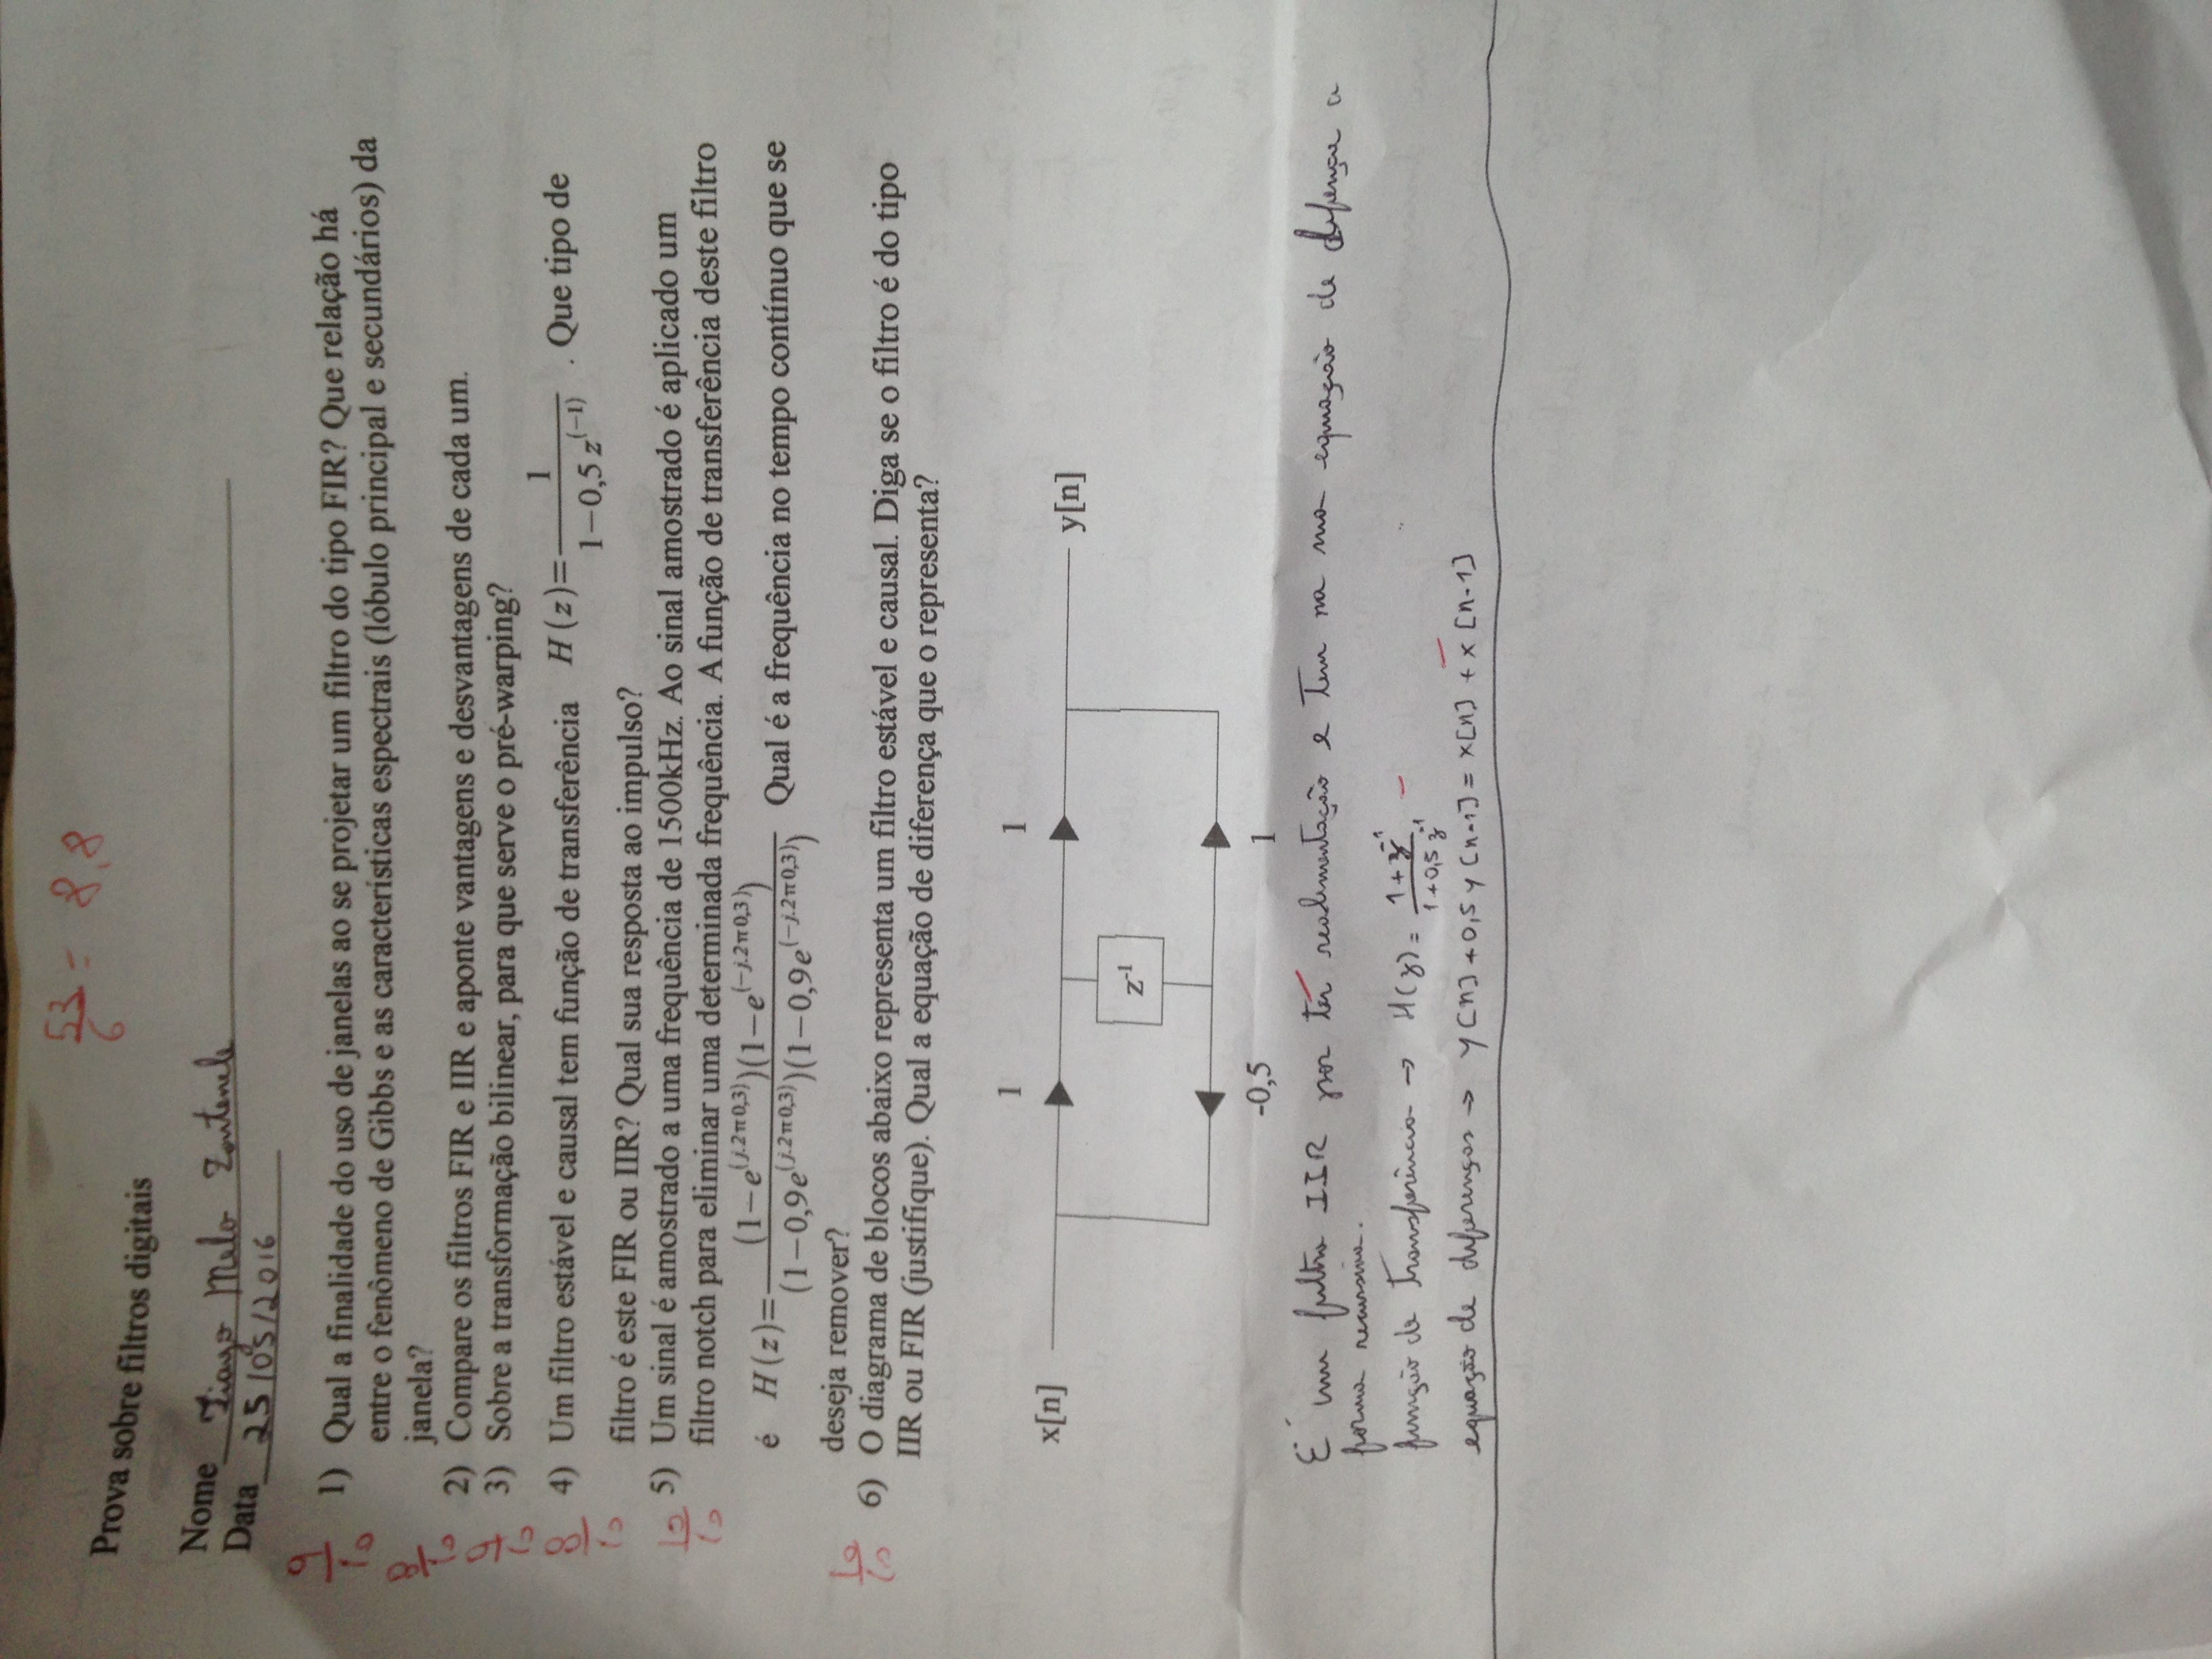 53/6 = 8,8
Prova sobre filtros digitais
Nome Tiago Melo Fontenele
Data 25/05/2016
1) Qual a finalidade do uso de janelas ao se projetar um filtro do tipo FIR? Que relação há
entre o fenômeno de Gibbs e as características espectrais (lóbulo principal e secundários) da
janela?
2) Compare os filtros FIR e IIR e aponte vantagens e desvantagens de cada um.
3) Sobre a transformação bilinear, para que serve o pré-warping?
4) Um filtro estável e causal tem função de transferência H(z)=1/(1−0,5z^(−1)) . Que tipo de
filtro é este FIR ou IIR? Qual sua resposta ao impulso?
5) Um sinal é amostrado a uma frequência de 1500kHz. Ao sinal amostrado é aplicado um
filtro notch para eliminar uma determinada frequência. A função de transferência deste filtro
é H(z)=(1−e^(j.2π0,3))(1−e^(−j.2π0,3))/(1−0,9e^(j.2π0,3))(1−0,9e^(−j.2π0,3)) Qual é a frequência no tempo contínuo que se
deseja remover?
6) O diagrama de blocos abaixo representa um filtro estável e causal. Diga se o filtro é do tipo
IIR ou FIR (justifique). Qual a equação de diferença que o representa?
1 1
x[n] y[n]
z^-1
-0,5 1
É um filtro IIR por ter realimentação e tem na sua equação de difença a
forma recursiva.
função de transferência → H(z) = (1+z^-1)/(1+0,5z^-1)
equação de diferenças → y[n] + 0,5y[n-1] = x[n] + x[n-1]